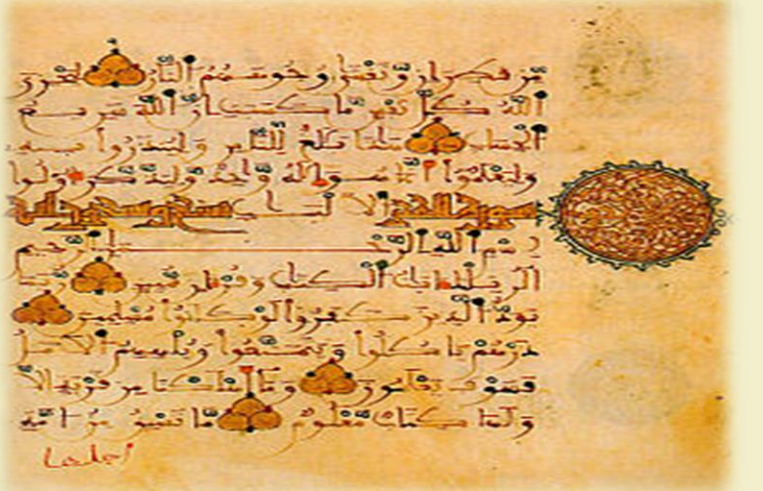 مّن قطران وتغشى وجوههم النار ليجزي
الله كلّ نفس ما كسبت إنّ الله سريع
الحساب هذا بلغ للناس ولينذروا به
وليعلموا أنما هو إله واحد وليذكر أولوا
سورة الحجر الألباب
بسم الله الرحمن الرحيم
الر تلك ءايت الكتب وقرءان مبين ربما
يودّ الذين كفروا لو كانوا مسلمين
ذرهم ياكلوا ويتمتعوا ويلههم الأمل
فسوف يعلمون وما أهلكنا من قرية إلا
ولها كتاب معلوم ما تسبق من امة
اجلها